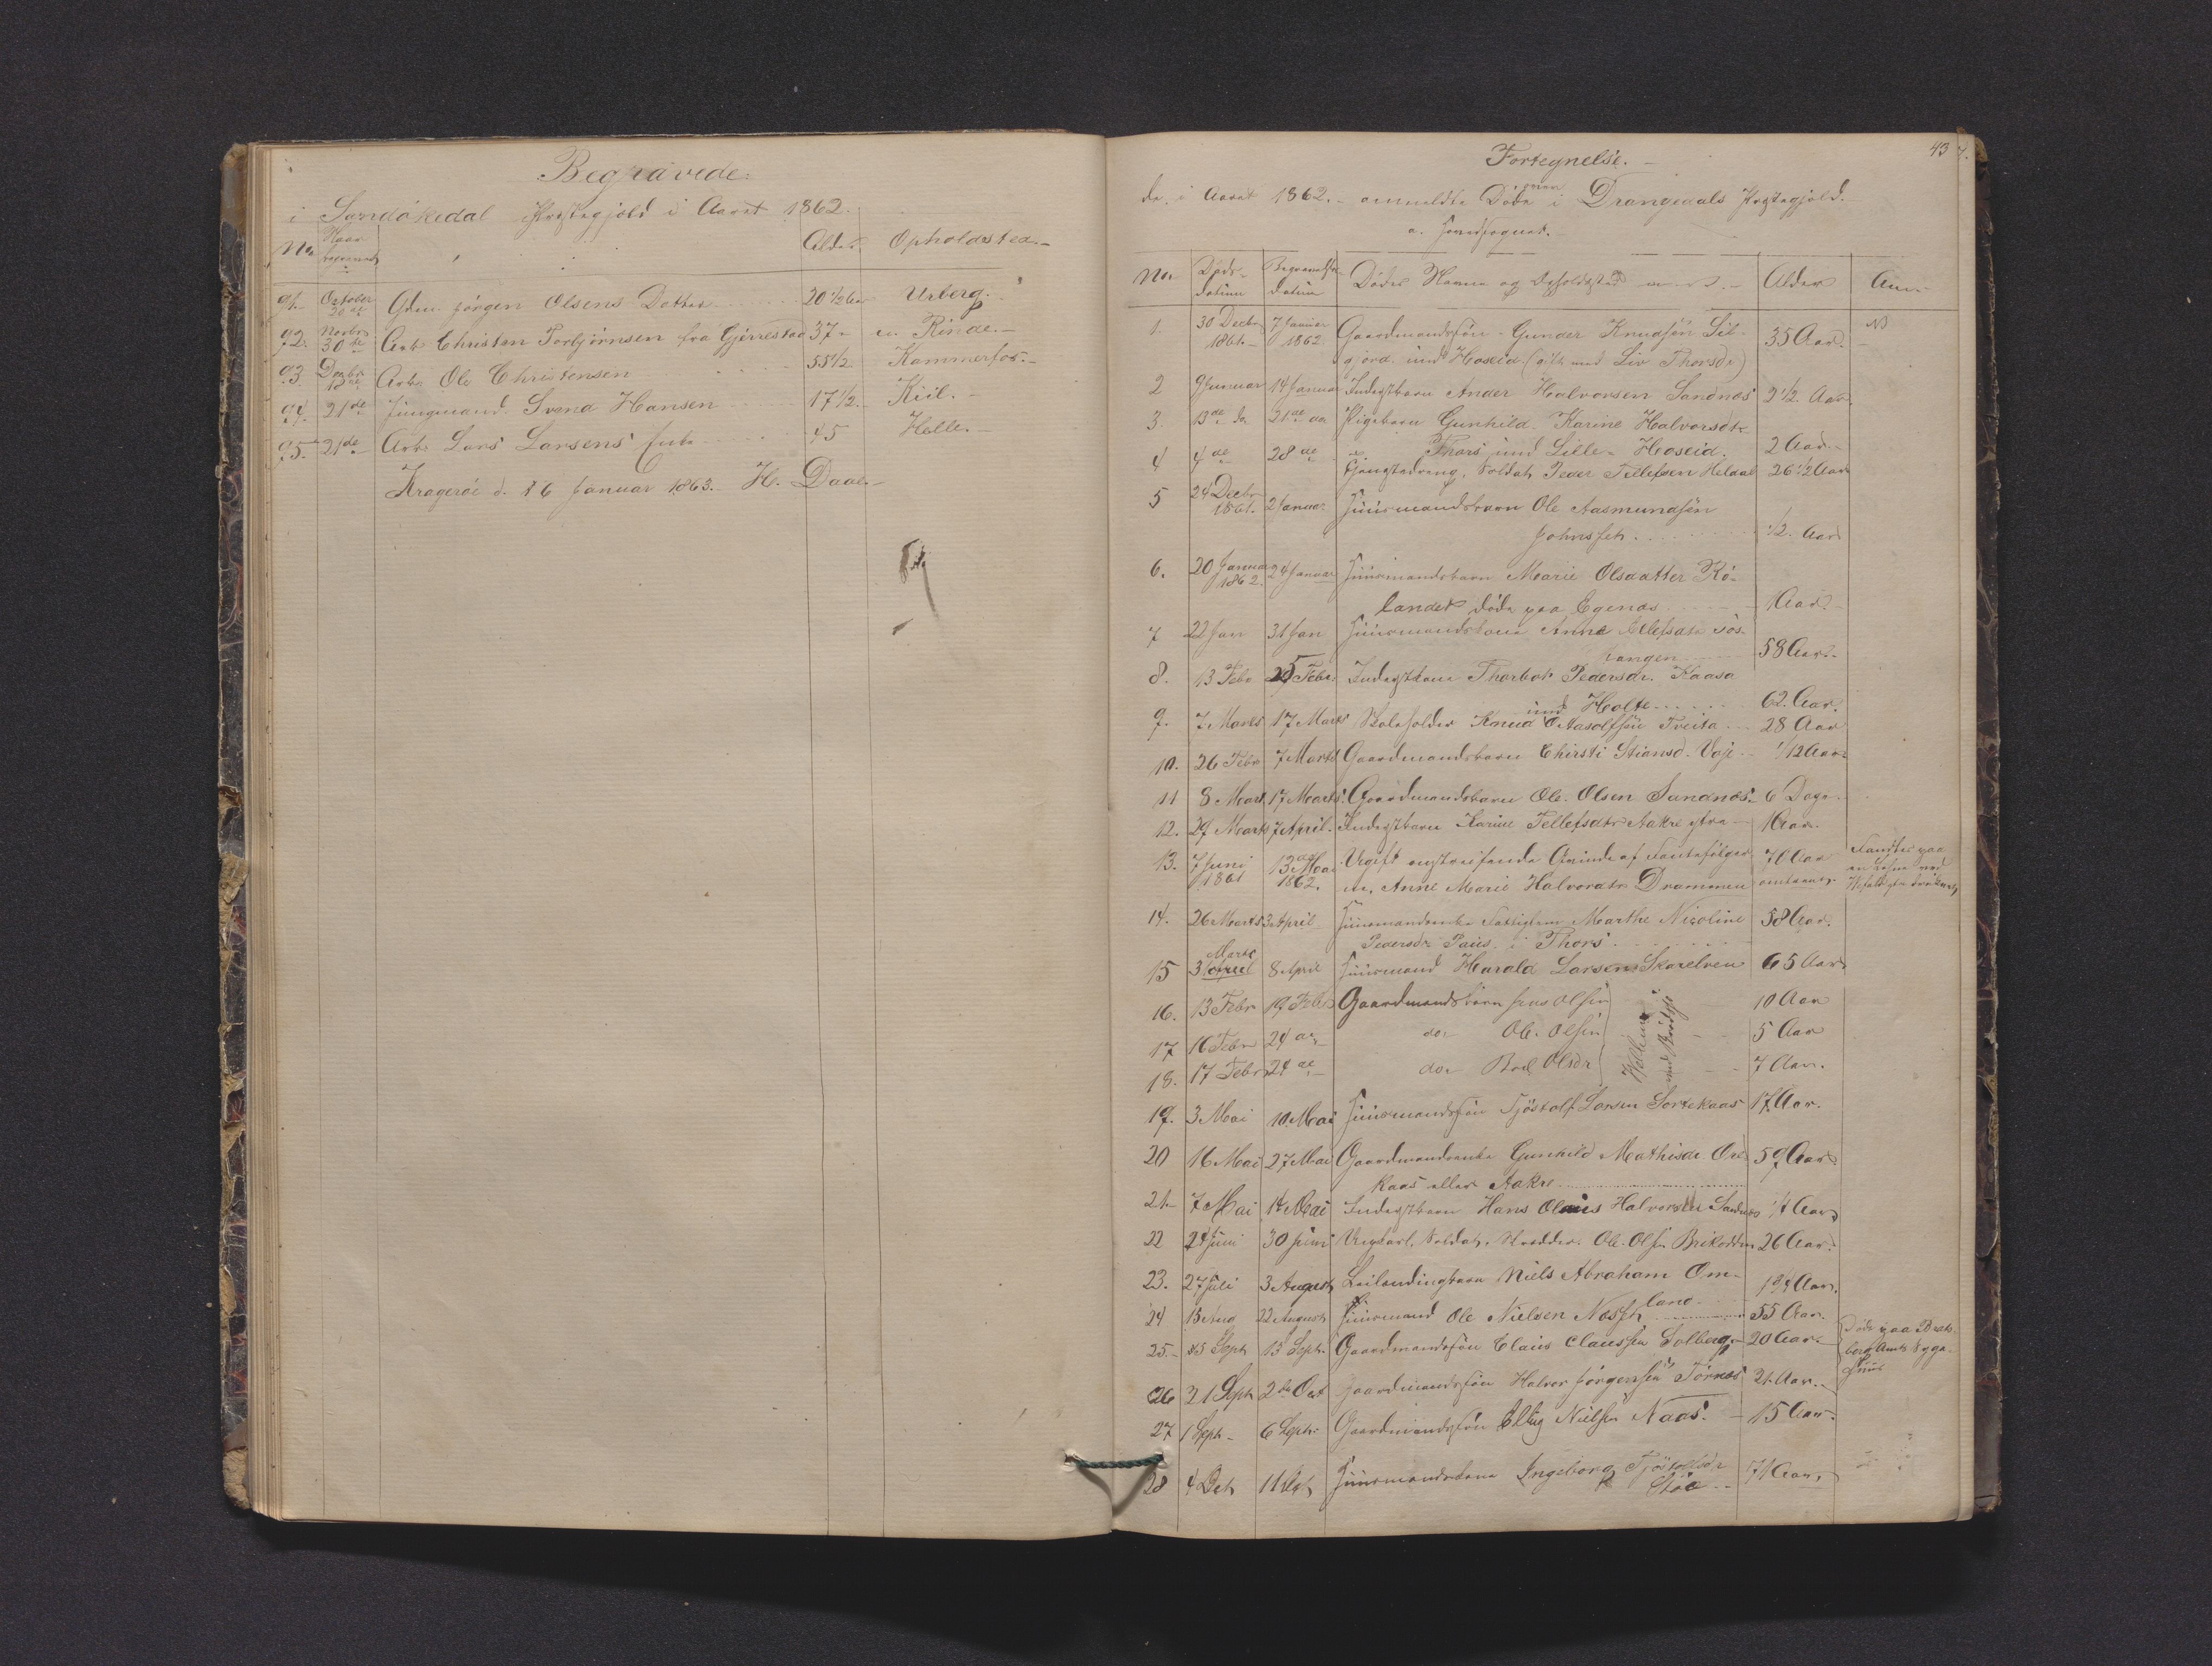 Begravede.
i Sandøkedal Præstegjeld i Aaret 1862.
No Naar begravet Alder Opholdssted.-
91. October 30te Gdm. Jørgen Olsens Datter 20 1/2 Aar Urberg.
92. Novbr 30te Arb. Christen Torbjørnsen fra Gjerrestad 37 - Rinde.-
93. Decbr 18de Arb. Ole Christensen 55 1/2 Kammerfos.-
94. 21de Jungmand Svend Hansen 17 1/2. Kiil.-
95. 21de Arb. Lars Larsens Enke 45 Helle.-
Kragerøe d. 16 Januar 1863. H. Daae.-
Fortegnelse.-
43
de i Aaret 1862.- anmeldte Døde i Drangedals Præstegjeld.
a. Hovedsognet.-
No. Døds-datum Begravelses-datum Dødes Navne og Opholdssted Alder Anm.
1. 30 Decbr 1861.- 7 Januar 1862 Gaardmandssøn Gunder Knudsøn Sil- 35 Aar. NB
gjord und. Hoseid. (gift med Liv Thorsdr)
2 9 Januar 14 Januar Inderstbarn Ander Halvorsen Sandnæs 2 1/2. Aar.
3. 13de do 21de do Pigebarn Gunhild Karine Halvorsdtr
Thors und Lille-Hoseid. 2 Aar.-
4 4de 28de Soldat Peder Tellefsen Heldal 26 1/2 Aar
5 24 Decbr 1861. 2 Januar. Huusmandsbarn Ole Aasmundsøn
Johnsseth 1/2. Aar
6. 20 Januar 1862. 24 Januar Huusmandsbarn Marie Olsdatter Rø-
landet døde paa Egenæs 1 Aar.
7 22 Jan 31 Jan Huusmandskone Anne Ellefsdtr Løs-
tangen 58 Aar.-
8. 13 Febr 25 Febr. Inderstkone Thorbor Pedersdr. Kaasa
und Holte 62. Aar.
9. 7 Marts 17 Marts Skoleholder Knud O Aasolfssøn Treita 28 Aar
10. 26 Febr 7 Marts Gaardmandsbarn Chirsti Stiansd. Voje 1/12 Aar
11 8 Mart. 17 Marts. Gaardmandsbarn Ole Olsen Sandnæs. 6 Dage.
12. 29 Marts 7 April. Inderstbarn Karine Tellefsdtr Aakre 1 Aar.
13. 7 Juni 1861 13de Mai 1862. Ugift omstreifende Qvinde af Fantefølge 70 Aar Fandtes paa
Anne Marie Halvorsdtr Drammen omtrent.
14. 26 Marts 3 April Huusmandsenke Marthe Nicoline 58 Aar.
Pedersdr Paus i Thors
15 Marts 31 April 8 April Huusmand Harald Larsen Skarelven 65 Aar.
16. 13 Febr 19 Febr Gaardmandsbarn Jens Olsen 10 Aar
17 16 Febr 24de do. Ole Olsen 5 Aar
18. 17 Febr 24de do. Boel Olsdr 7 Aar.
19. 3 Mai 10. Mai Huusmandssøn Tjøstolf Larsen Sortekaas 17 Aar.
20 16 Mai 27 Mai Gaardmandsenke Gunhild Mathisdr Ore- 59 Aar
kaas eller Aakre
21.- 7 Mai 14 Mai Inderstbarn Hans Olaus Halvorsen Sandnæs 1/4 Aar
22 24 Juni 30 Juni Ungkarl. Soldat. Skrædder Ole Olsen Brikodden 26 Aar.
23. 27 Juli 3 August Leilendingbarn Niels Abraham Om- 1 3/4 Aar.
land.
24 15 Aug 22 August Huusmand Ole Nielsen Næsset 55 Aar.
25.- 5 Sept 13 Sept. Gaardmandssøn Claus Claussen Solberg 20 Aar- Døde paa Brats-
berg Amts Syge-
huus
26 21 Sept 2de Oct Gaardmandssøn Halvor Jørgensen Tørnes 21. Aar.-
27 1 Sept- 6 Sept- Gaardmandssøn Ellig Nielsen Naas. 15 Aar.
28 4 Oct 11 Oct Huusmandskone Ingeborg Tjøstolfsdr 71 Aar,
Støa